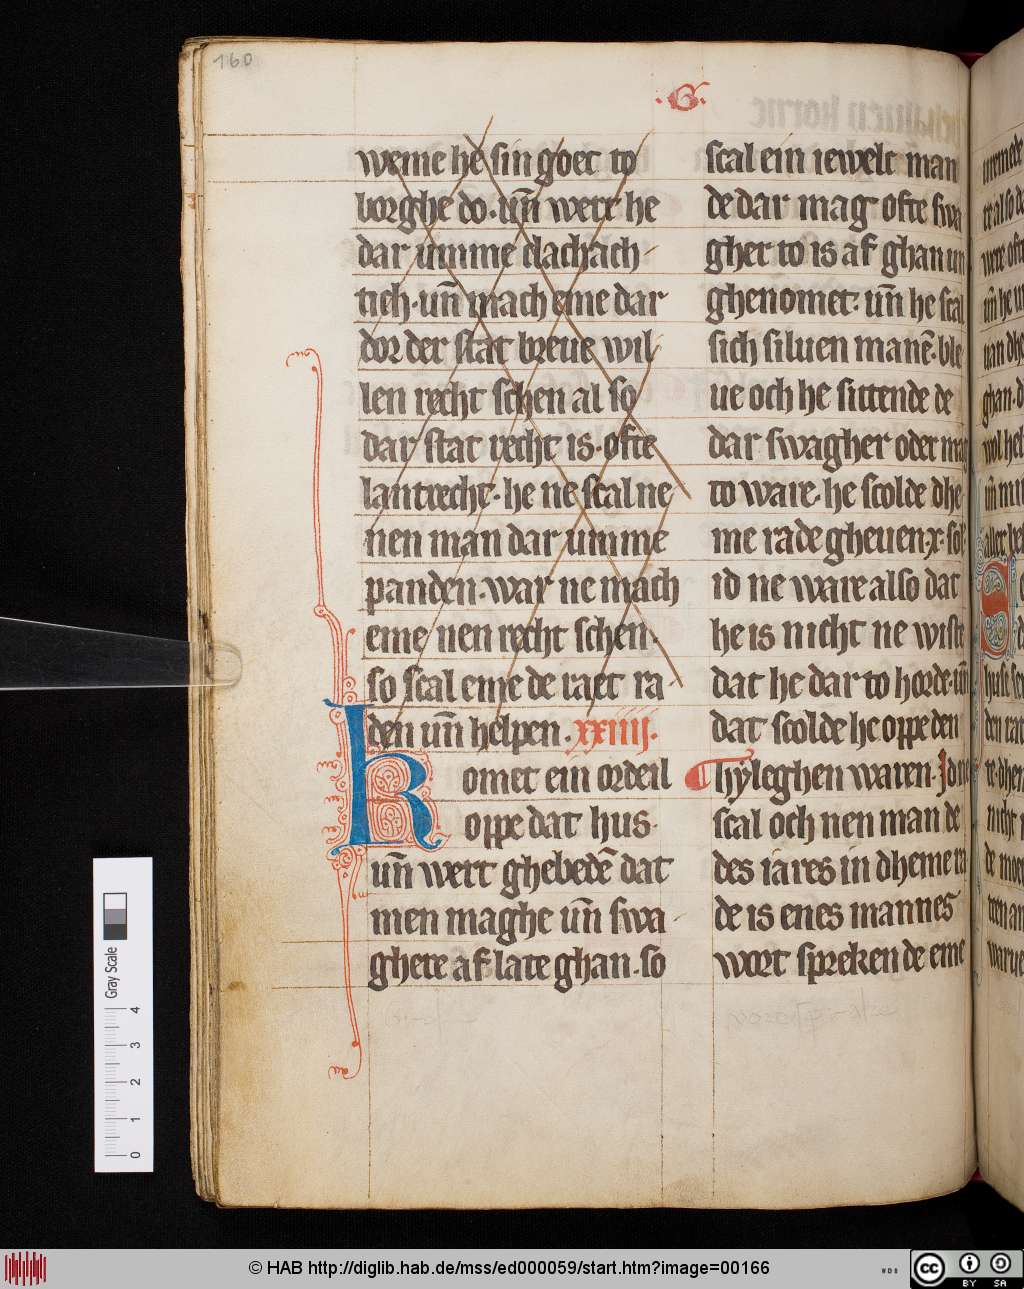 160
·G·
weme he sin goet to
borghe do· uñ wert he
dar umme clachach
tich· uñ mach eme dar
dor der stat breue wil
len recht schen al so
dar stat recht is· ofte
lantrecht· he ne scal ne
nen man dar umme
panden· war ne mach
eme nen recht schen·
so scal eme de raet ra
den uñ helpen· xxiiij·
Komet ein ordeil
oppe dat hus·
uñ wert ghebedē dat
men maghe uñ swa
ghere af late ghan· so
scal ein iewelt man
de dar mag ofte swa
gher to is af ghan un
ghenomet· uñ he scal
sich siluen manē· ble
ue och he sittende de
dar swagher oder mag
to ware· he scolde dhe
me rade gheuen· x· sol
id ne ware also dat
he is nicht ne wiste
dat he dar to horde· uñ
dat scolde he oppe den
hyleghen waren· Id ne
scal och nen man de
des iares in dheme ra
de is enes mannes
wort spreken de eme
Gray Scale
0 1 2 3 4
© HAB http://diglib.hab.de/mss/ed000059/start.htm?image=00166
WDB
CC BY SA